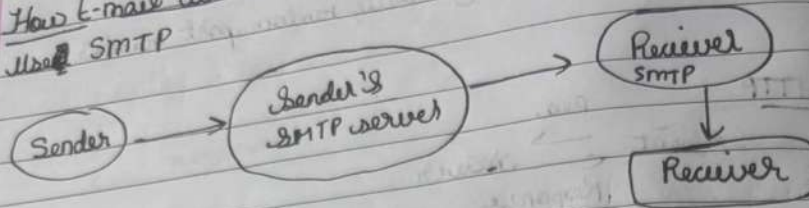 How E-mail
Use SMTP
Sender
Sender's
SMTP server
Reciever
SMTP
Reciever